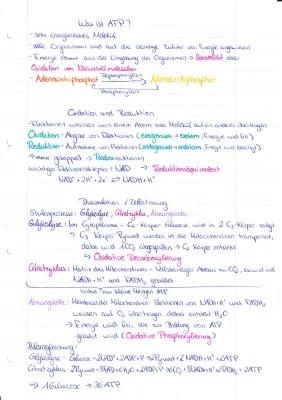 Was ist ATP?
- sehr energiereiches Molekül
- alle Organismen sind auf die ständige Zufuhr von Energie angewiesen
- Energie stammt aus der Umgebung der Organismen → Sonnenlicht oder
Oxidation von Nährstoffmolekülen
- Adenosintriphosphat Dephosphorylert Adenosindiphosphat
Phosphoryliert
Oxidation und Reduktion
- Elektronen werden von einem Atom oder Molekül auf ein anderes übertragen
Oxidation - Abgabe von Elektronen (exergonisch → exotherm, Energie wird frei)
Reduktion - Aufnahme von Elektronen (endergonisch → endotherm, Energie wird benötigt)
→ immer gekoppelt → Redoxreaktionen
wichtige Elektronenakzeptor: NAD → Reduktionsäquivalent
NAD⁺ + 2H⁺ + 2e⁻ ⇌ NADH + H⁺
Dissimilation / Zellatmung
Stufenprozesse: Glykolyse, Citratzyklus, Atmungskette
Glykolyse: Im Cytoplasma - C₆ Körper Glucose wird in 2 C₃ Körper zerlegt
→ C₃ Körper Pyruvat werden in die Mitochondrien transportiert,
dabei wird CO₂ abgespalten → C₂ Körper entsteht
→ Oxidative Decarboxylierung
Citratzyklus: Matrix des Mitochondriums - vollständiger Abbau zu CO₂, es wird viel
NADH + H⁺ und FADH₂ gebildet
bisher nur kleine Mengen ATP
Atmungskette: Membran der Mitochondrien: Elektronen von NADH + H⁺ und FADH₂
werden auf O₂ übertragen dabei entsteht H₂O
→ Energie wird frei, die zur Bildung von ATP
genutzt wird (Oxidative Phosphorylierung)
Bilanzgleichung:
Glykolyse - Glucose + 2NAD⁺ + 2ADP + P → 2Pyruvat + 2NADH + H⁺ + 2ATP
→ 1 Glucose → 36 ATP